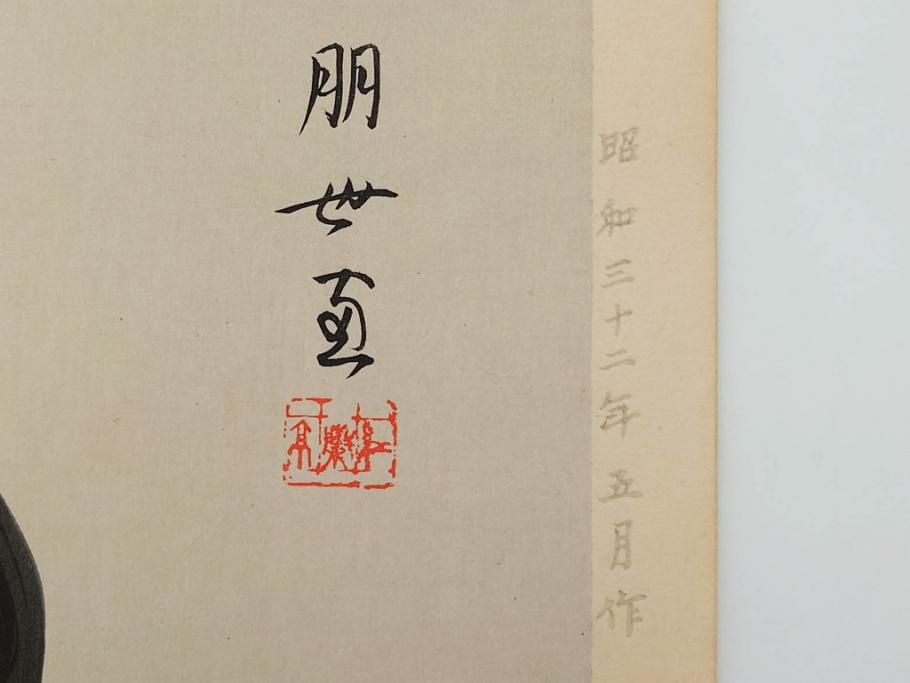 昭和三十二年五月作
朋世画